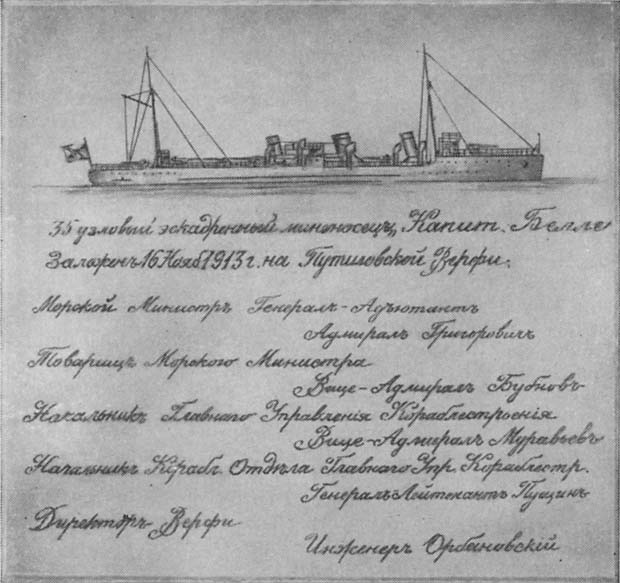 35 узловый эскадренный миноносецъ „Капит. Белле“
Заложенъ 16 Нояб 1913 г. на Путиловской Верфи.
Морской Министръ Генералъ-Адъютантъ
Адмиралъ Григоровичъ
Товарищъ Морского Министра
Вице-Адмиралъ Бубновъ
Начальникъ Главнаго Управленія Кораблестроенія
Вице-Адмиралъ Муравьевъ
Начальникъ Корабл. Отдѣла Главнаго Упр. Кораблестр.
Генералъ Лейтенантъ Пущинъ
Директоръ Верфи
Инженеръ Орбановскій